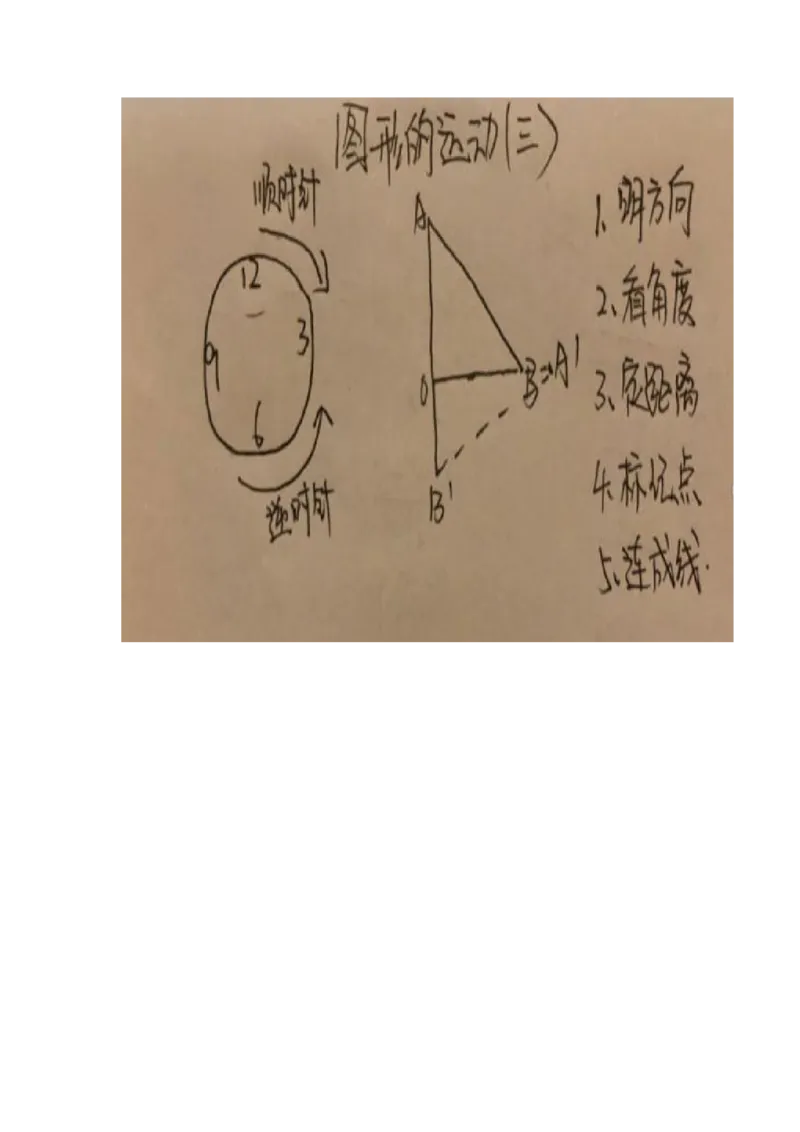 图形的运动(三)
顺时针
12
3
9
6
逆时针
A
O
B→A'
B'
1、明方向
2、看角度
3、定距离
4、标记点
5、连成线.